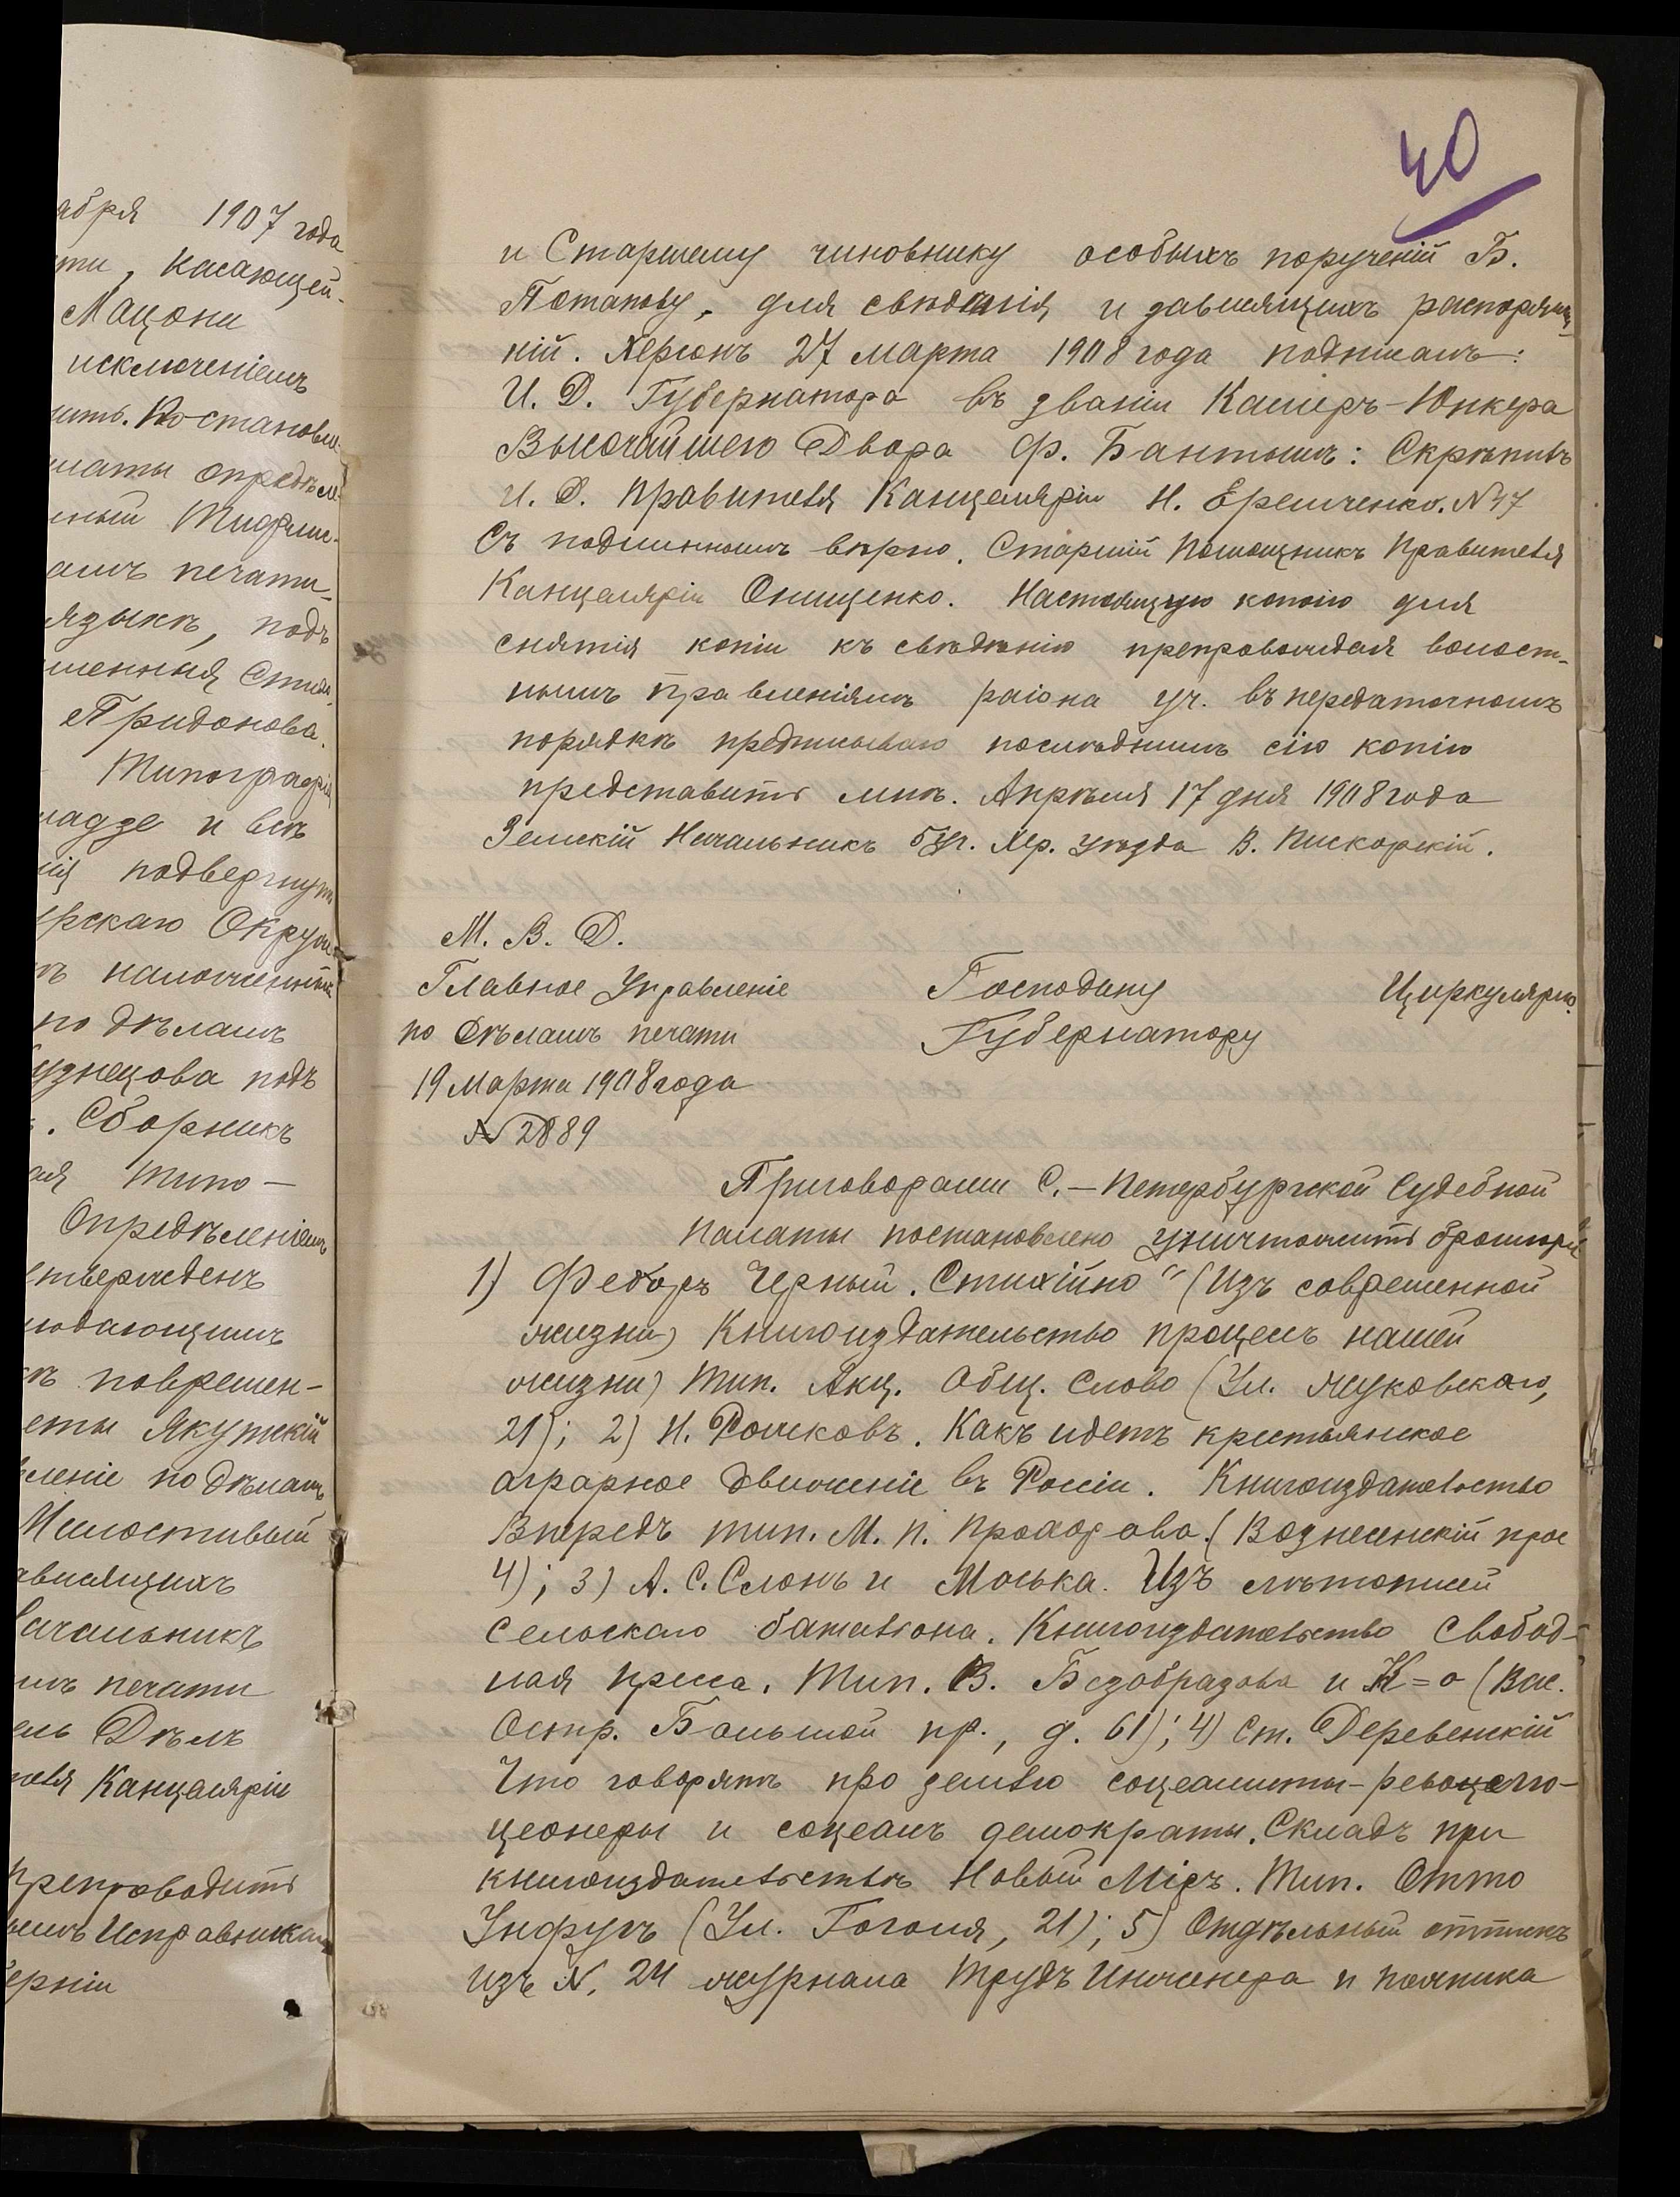 ября 1907 года
ти, касающей-
Мацони
исключеніемъ
ить. Постановле-
латы опредѣле-
нный Тифлис-
амъ печати-
языкѣ, подъ
шенныя
Придонова.
Типографія
надзе и всѣ
подвергнуть
ерскаго Окруж
наложенный
по дѣламъ
узнецова подъ
. Сборникъ
ая типо-
Опредѣленіемъ
твержденъ
людающимъ
повремен-
еты Якутскій
вленіе по дѣламъ
Милостивый
ависящихъ
Начальникъ
мъ печати
ель Дѣлъ
теля Канцеляріи
Препроводить
Исправникамъ
ерніи
40
и Старшему чиновнику особыхъ порученій Б.
Потапову, для свѣдѣнія и зависящихъ распоряже-
ній. Херсонъ 27 марта 1908 года подписалъ:
И. Д. Губернатора въ званіи Камеръ-Юнкера
Высочайшего Двора Ф. Бантышъ: Скрѣпилъ
И. Д. Правителя Канцеляріи Н. Еремченко. № 47
Съ подлиннымъ вѣрно. Старшій Помощникъ Правителя
Канцеляріи Онищенко. Настоящую копію для
снятія копіи къ свѣдѣнію препровождая волост-
нымъ правленіямъ раіона уч. въ передаточномъ
порядкѣ предписываю послѣднимъ сію копію
представить мнѣ. Апрѣля 17 дня 1908 года
Земскій Начальникъ 5 уч. Хер. уѣзда В. Пискорскій.
М. В. Д.
Главное Управленіе Господину Циркулярно.
по Дѣламъ печати Губернатору
19 Марта 1908 года
№ 2889
Приговорами С.-Петербургской Судебной
Палаты постановлено уничтожить брошюры
1) Федоръ Черный. Стихійно" (Изъ современной
жизни) Книгоиздательство процессъ нашей
жизни) Тип. Акц. Общ. Слово (Ул. Жуковскаго,
21); 2) Н. Рожковъ. Какъ идетъ крестьянское
аграрное движеніе въ Россіи. Книгоиздательство
Впередъ тип. М. П. Прохорова. (Вознесенскій прос
4); 3) А. С. Слонъ и Моська. Изъ лѣтописей
сельскаго баталіона. Книгоиздательство Свобод-
ная пресса. Тип. В. Безобразова и К=о (Вас.
Остр. Большой пр., д. 61); 4) Ст. Деревенскій
Что говорятъ про землю соцеалисты-револю-
ціонеры и соцеалъ демократы. Складъ при
книгоиздательствѣ Новый Міръ. Тип. Отто
Унфугъ (Ул. Гоголя, 21); 5) Отдѣльный оттискъ
изъ №. 24 журнала Трудъ Инженера и